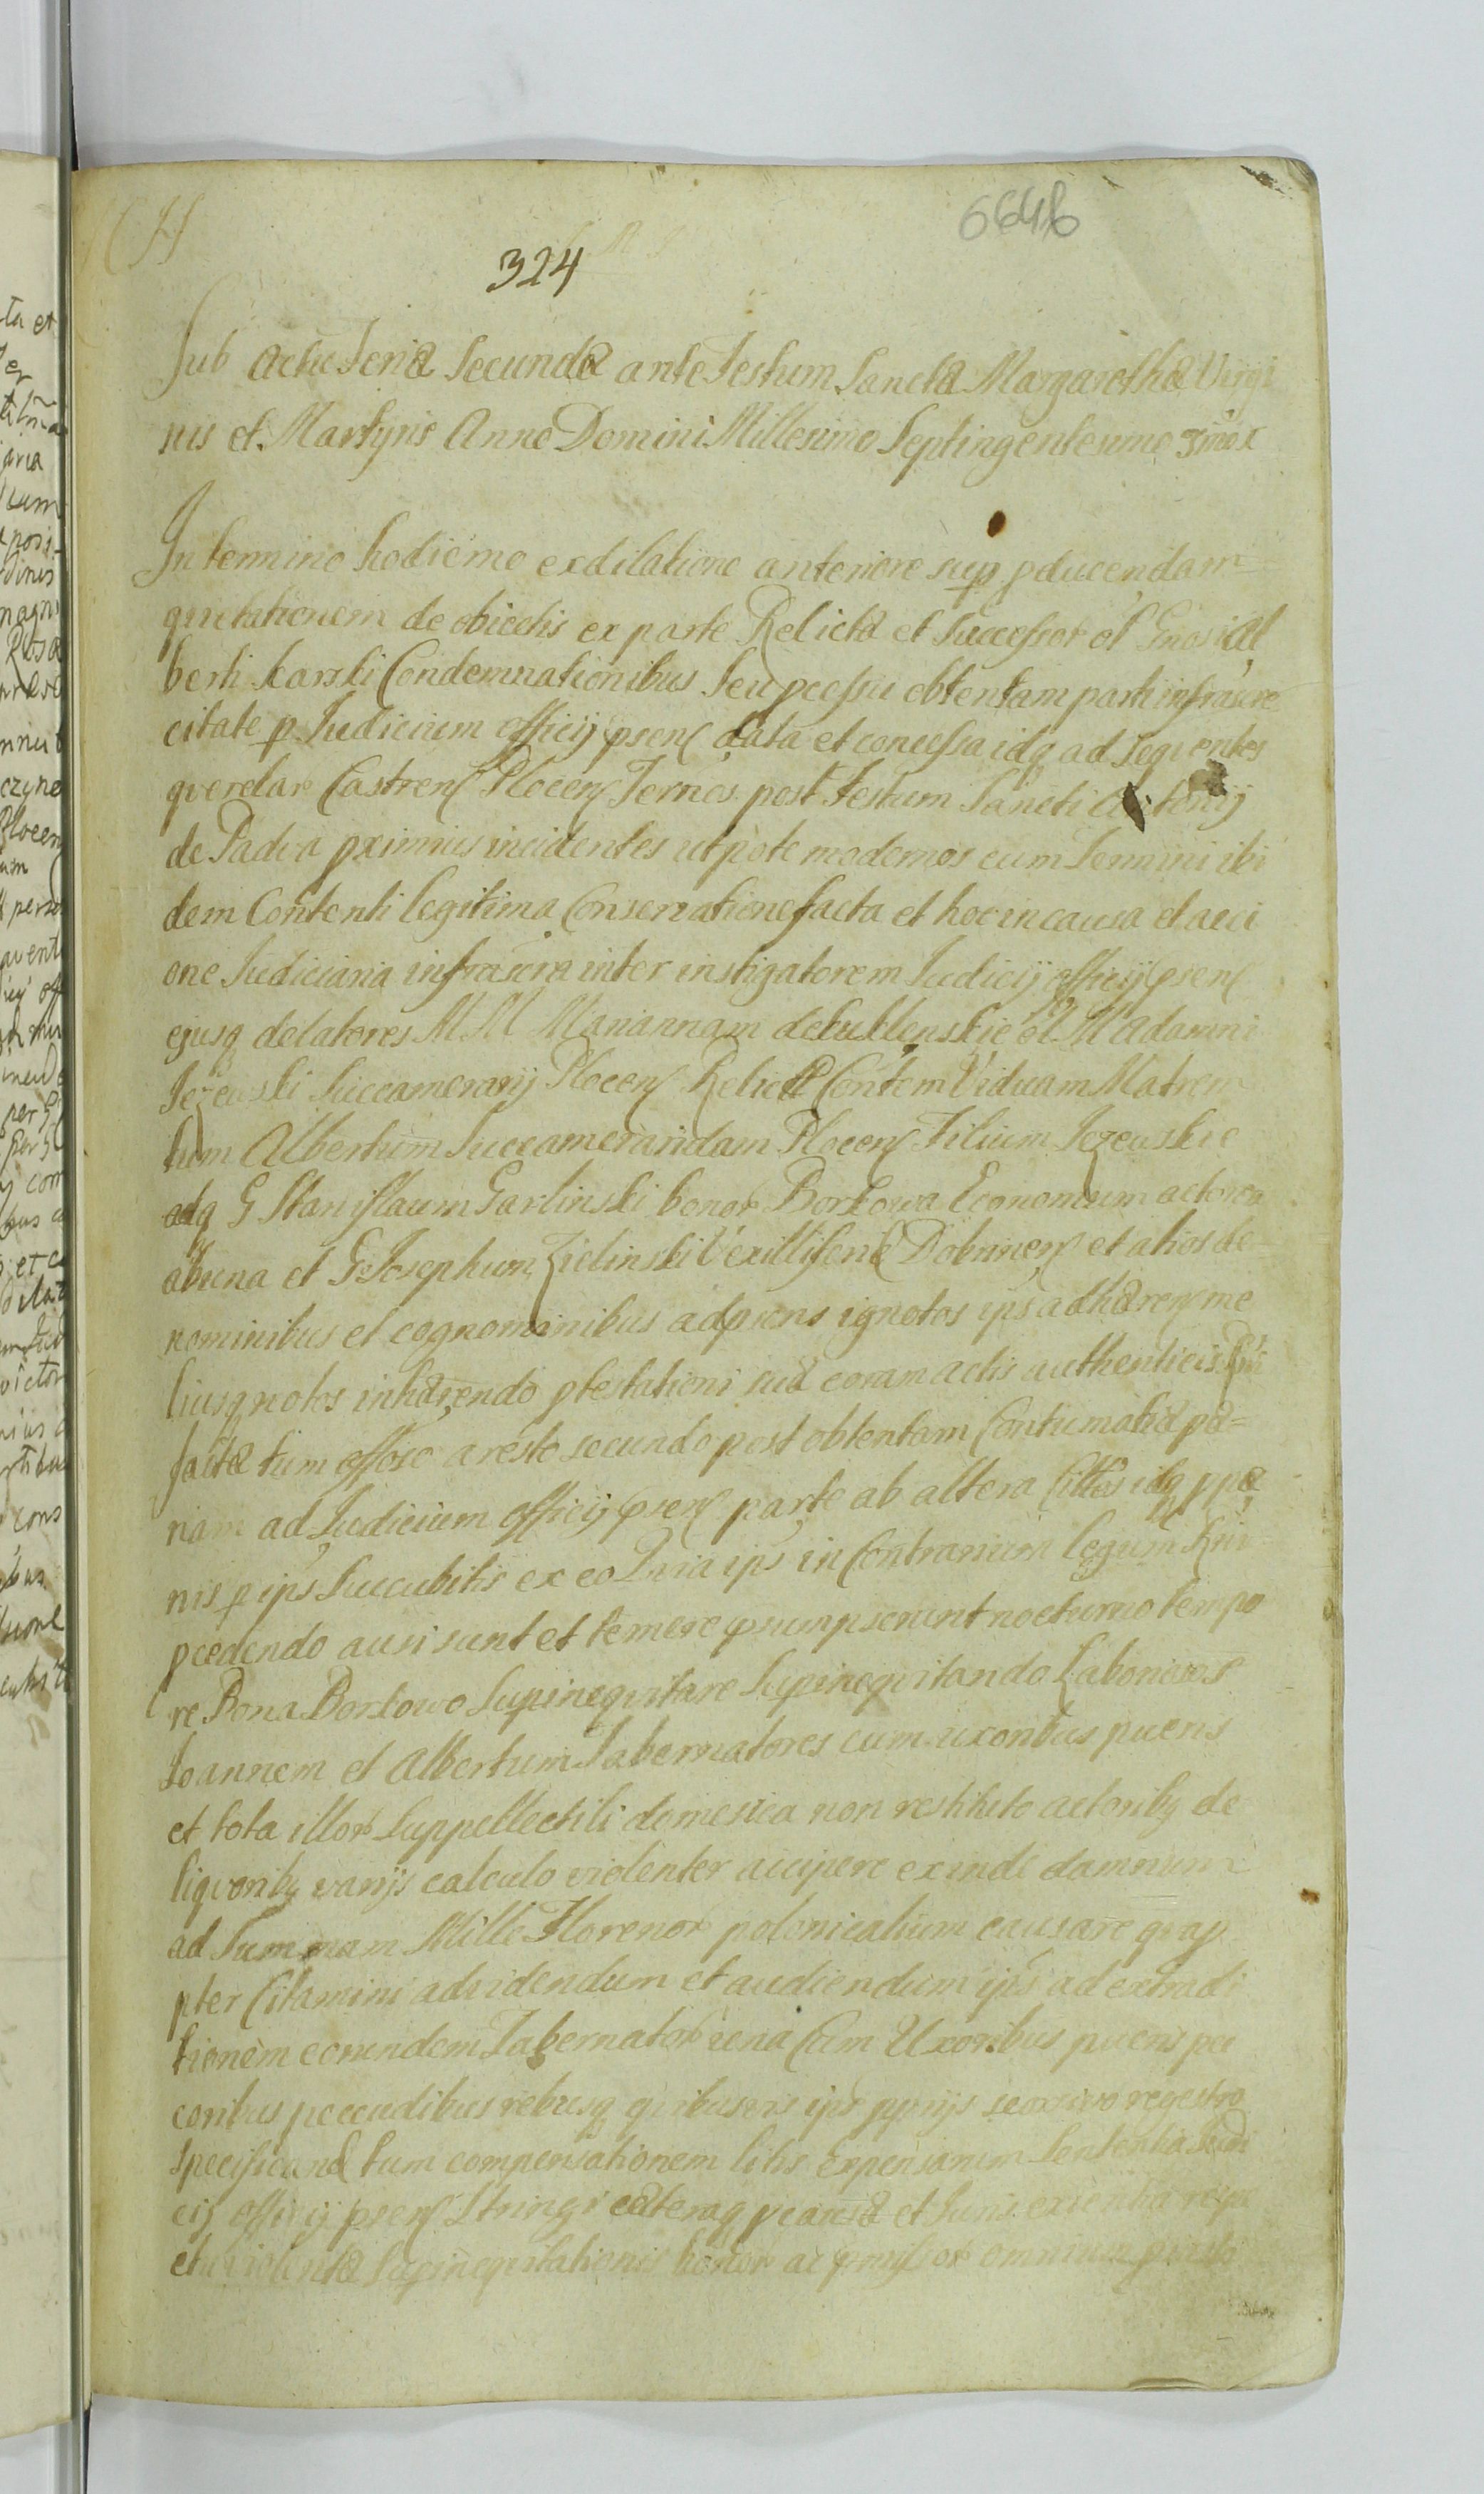 6646
324
Sub Actu Feriæ Secundæ ante Festum Sanctæ Margarethæ Virgi
nis et Martyris Anno Domini Millesimo Septingentesimo
In termino hodierno ex dilatione anteriore sup pducendam
quietationem de obiectis ex parte Relictæ et Successor ol Gnosi Al
berti Karski Condemnationibus seu pcessu obtentam parti infrascre
citate p Iudicium officij psens data et concessa idq ad sequentes
querelar Castrens Plocens Termos post Festum Sancti Antonij
de Padva pximius incidentes utpote modernos cum Termini ibi
dem Contenti legitima Conservatione facta et hoc in causa et acti
one Iudiciaria infrascra inter instigatorem Iudicij officij psens
ejusq delatores M M Mariannam de ol M Adamni
Jezewski Succamerarij Plocens Relictæ Contem Viduam Matrem
tum Albertum Succameraridam Plocens Filium Jezewskie
adq G Stanislaum Garlinski bonor Borkowa Economum actores
ab una et G Josephum Zielinski Vexilliferidæ Dobrinens et alios de
nominibus et cognominibus ad psens ignotos ips adhærens me
liusq notos inhærendo ptestationi suæ coram actis authenticis
factæ tum offoso aresto secundo post obtentam Contumatiæ pæ=
nam ad Iudicium officij psens parte ab altera Cittos idq ppæ
nis p ips Succubitis ex eo Quia ips in Contrarium legum Rni
pcedendo ausi sunt et temere psumpserunt nocturno tempo
re Bona Borkowo Supinequitare Supinequitando Laboriosos
Joannem et Albertum Tabernatores cum uxoribus pueris
et tota illor Suppellectili domestica non restituto actoribq de
liquoribq varijs calculo violenter accipere exinde damnum
ad Summam Mille Florenor polonicalium causare qvap
pter Citamini ad videndum et audiendum ips ad extradi
tionem eorundem Tabernator una Cum Uxoribus pueris pe
coribus pecudibus rebusq quibusvis ips pprijs seorsivo regestro
specificand tum compensationem litis Expensarum Sententia Iudi
cij officij psens Stringi cæteraq pcausæ et Iuris exientia
Supinequitationis bonor ac pmissor omnium